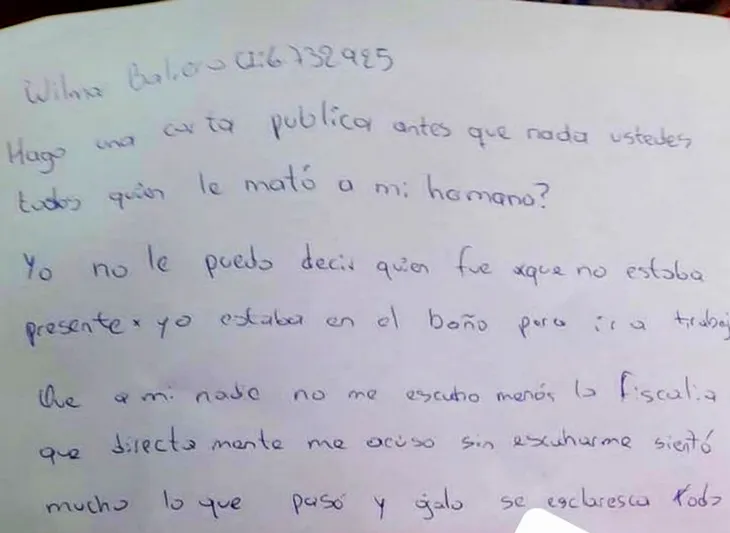 Wilma CI:6732925
Hago una carta publica antes que nada ustedes
todos quien le mató a mi hemano?
Yo no le puedo decir quien fue xque no estaba
presente x yo estaba en el baño para ir a trabaj
Que a mi nadie no me escuho menós la fiscalia
que directa mente me acuso sin escuharme sientó
mucho lo que pasó y ójalo se esclaresca todo